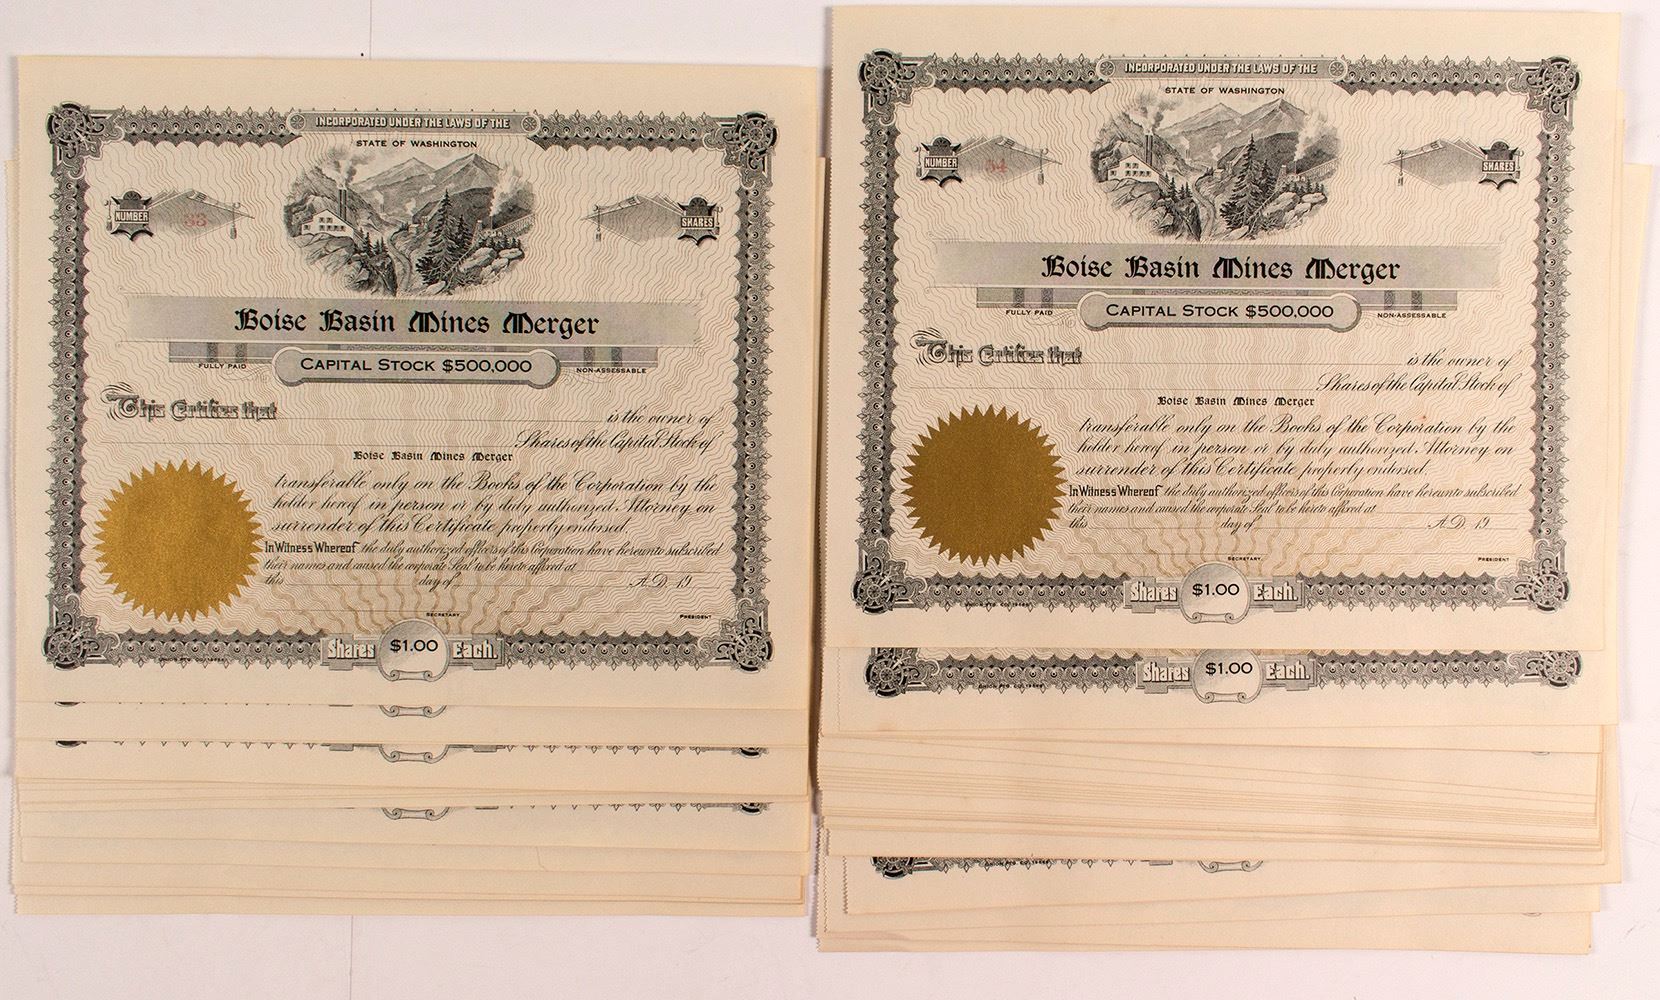 INCORPORATED UNDER THE LAWS OF THE
STATE OF WASHINGTON
NUMBER
33
SHARES
Boise Basin Mines Merger
FULLY PAID
CAPITAL STOCK $500,000
NON-ASSESSABLE
This Certifies that
is the owner of
Shares of the Capital Stock of
Boise Basin Mines Merger
transferable only on the Books of the Corporation by the
holder hereof in person or by duly authorized Attorney on
surrender of this Certificate properly endorsed.
In Witness Whereof the duly authorized officers of this Corporation have hereunto subscribed
their names and caused the corporate Seal to be hereto affixed at
this day of A.D. 19
SECRETARY
PRESIDENT
Shares $1.00 Each.
INCORPORATED UNDER THE LAWS OF THE
STATE OF WASHINGTON
NUMBER
34
SHARES
Boise Basin Mines Merger
FULLY PAID
CAPITAL STOCK $500,000
NON-ASSESSABLE
This Certifies that
is the owner of
Shares of the Capital Stock of
Boise Basin Mines Merger
transferable only on the Books of the Corporation by the
holder hereof in person or by duly authorized Attorney on
surrender of this Certificate properly endorsed.
In Witness Whereof the duly authorized officers of this Corporation have hereunto subscribed
their names and caused the corporate Seal to be hereto affixed at
this day of A.D. 19
SECRETARY
PRESIDENT
Shares $1.00 Each.
UNION PTG. CO.
Shares $1.00 Each.
UNION PTG. CO.